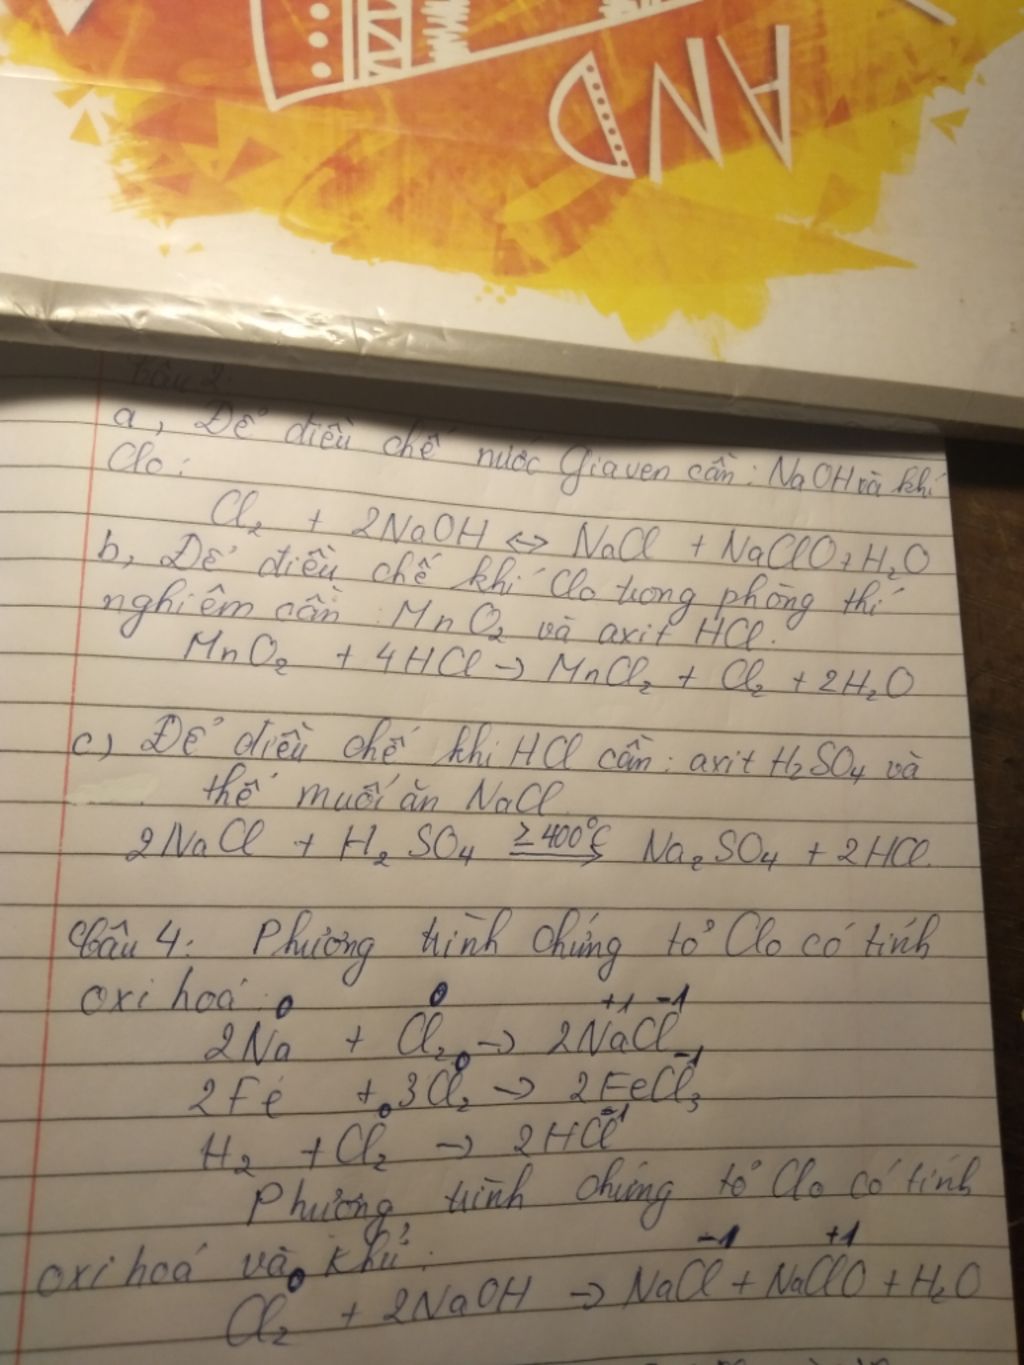 AND
Câu 2:
a, Để điều chế nước Giaven cần: NaOH và khí
Clo:
Cl₂ + 2NaOH ⇔ NaCl + NaClO + H₂O
b, Để điều chế khí Clo trong phòng thí
nghiêm cần: MnO₂ và axit HCl.
MnO₂ + 4HCl → MnCl₂ + Cl₂ + 2H₂O
c) Để điều chế khi HCl cần: axit H₂SO₄ và
thế muối ăn NaCl
2NaCl + H₂SO₄ ≥400°C Na₂SO₄ + 2HCl.
Câu 4: Phương trình chứng tỏ Clo có tính
oxi hoá:
0 0 +1 -1
2Na + Cl₂ → 2NaCl
0 -1
2Fe + 3Cl₂ → 2FeCl₃
0 -1
H₂ + Cl₂ → 2HCl
Phương trình chứng tỏ Clo có tính
oxi hoá và khử:
0 -1 +1
Cl₂ + 2NaOH → NaCl + NaClO + H₂O